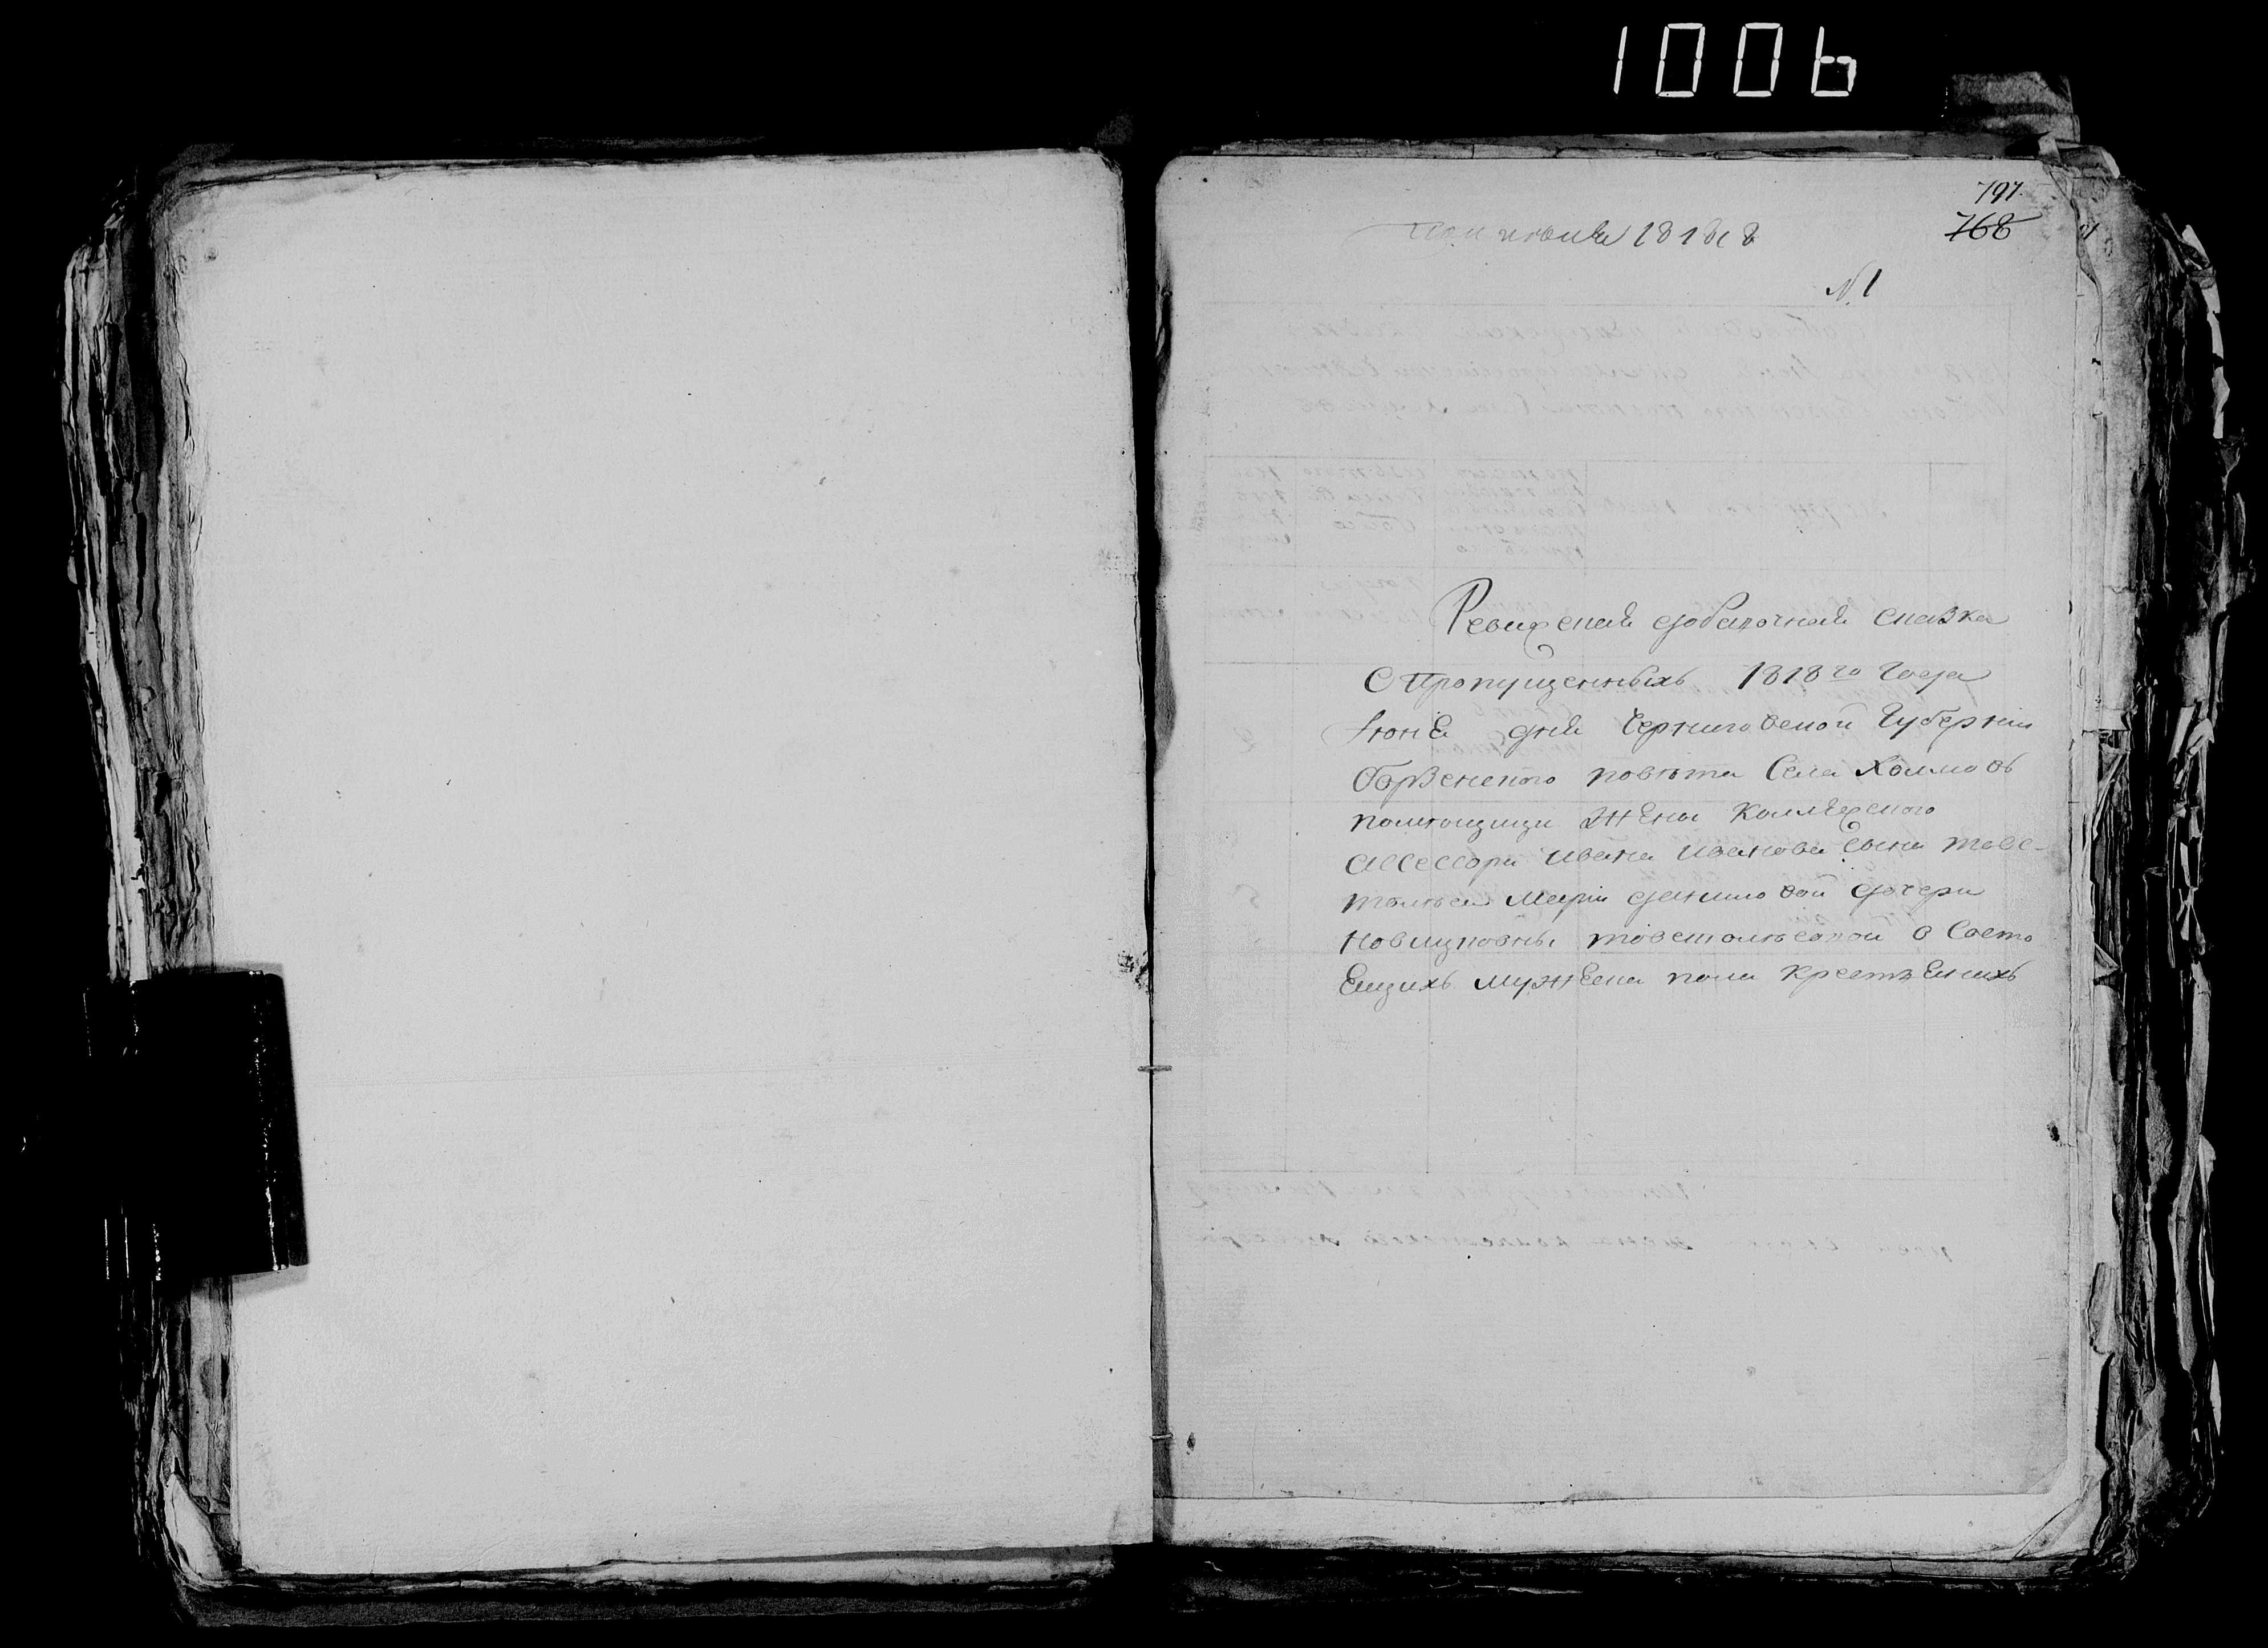 1006
797.
768
1818
№ 1
Ревизская добавочная сказка
О пропущенныхъ 1818го Года
Июня дня Черниговской Губернии
Борзенского повета Села Холмовъ
помещици Жены Коллезского
Асессора Ивана Иванова Сына товс-
толеса Марии даниловой дочери
товстолесовой о Состо
Ещихъ мужеска пола крестьЕнихъ